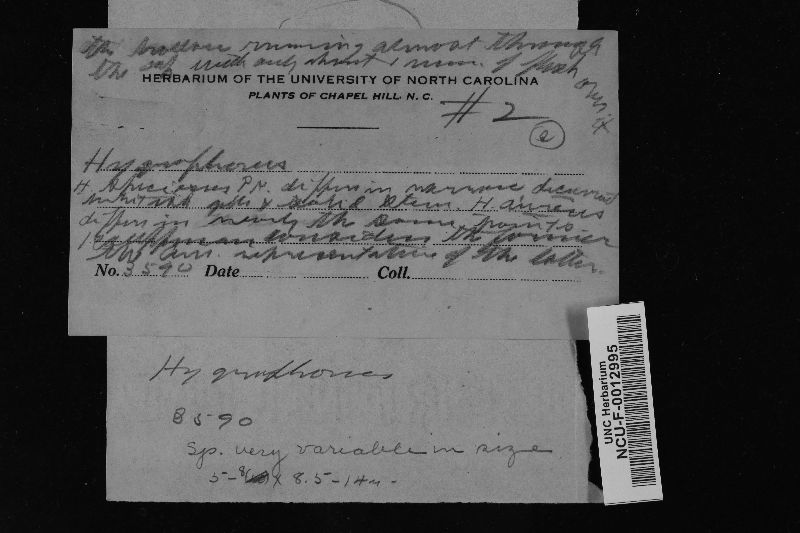 the hollow running almost through
the cap with only about 1 mm. of flesh over it
HERBARIUM OF THE UNIVERSITY OF NORTH CAROLINA
PLANTS OF CHAPEL HILL, N. C.
#2
Hygrophorus
H. speciosus Pk. differs in narrow decurrent
gills & solid stem. H. aureus
differs in nearly the same points
Kauffman considers the former
the Am. representative of the latter.
No. 3590 Date Coll.
Hygrophorus
3590
Sp. very variable in size
5-8 x 8.5-14μ.
UNC Herbarium
NCU-F-0012995